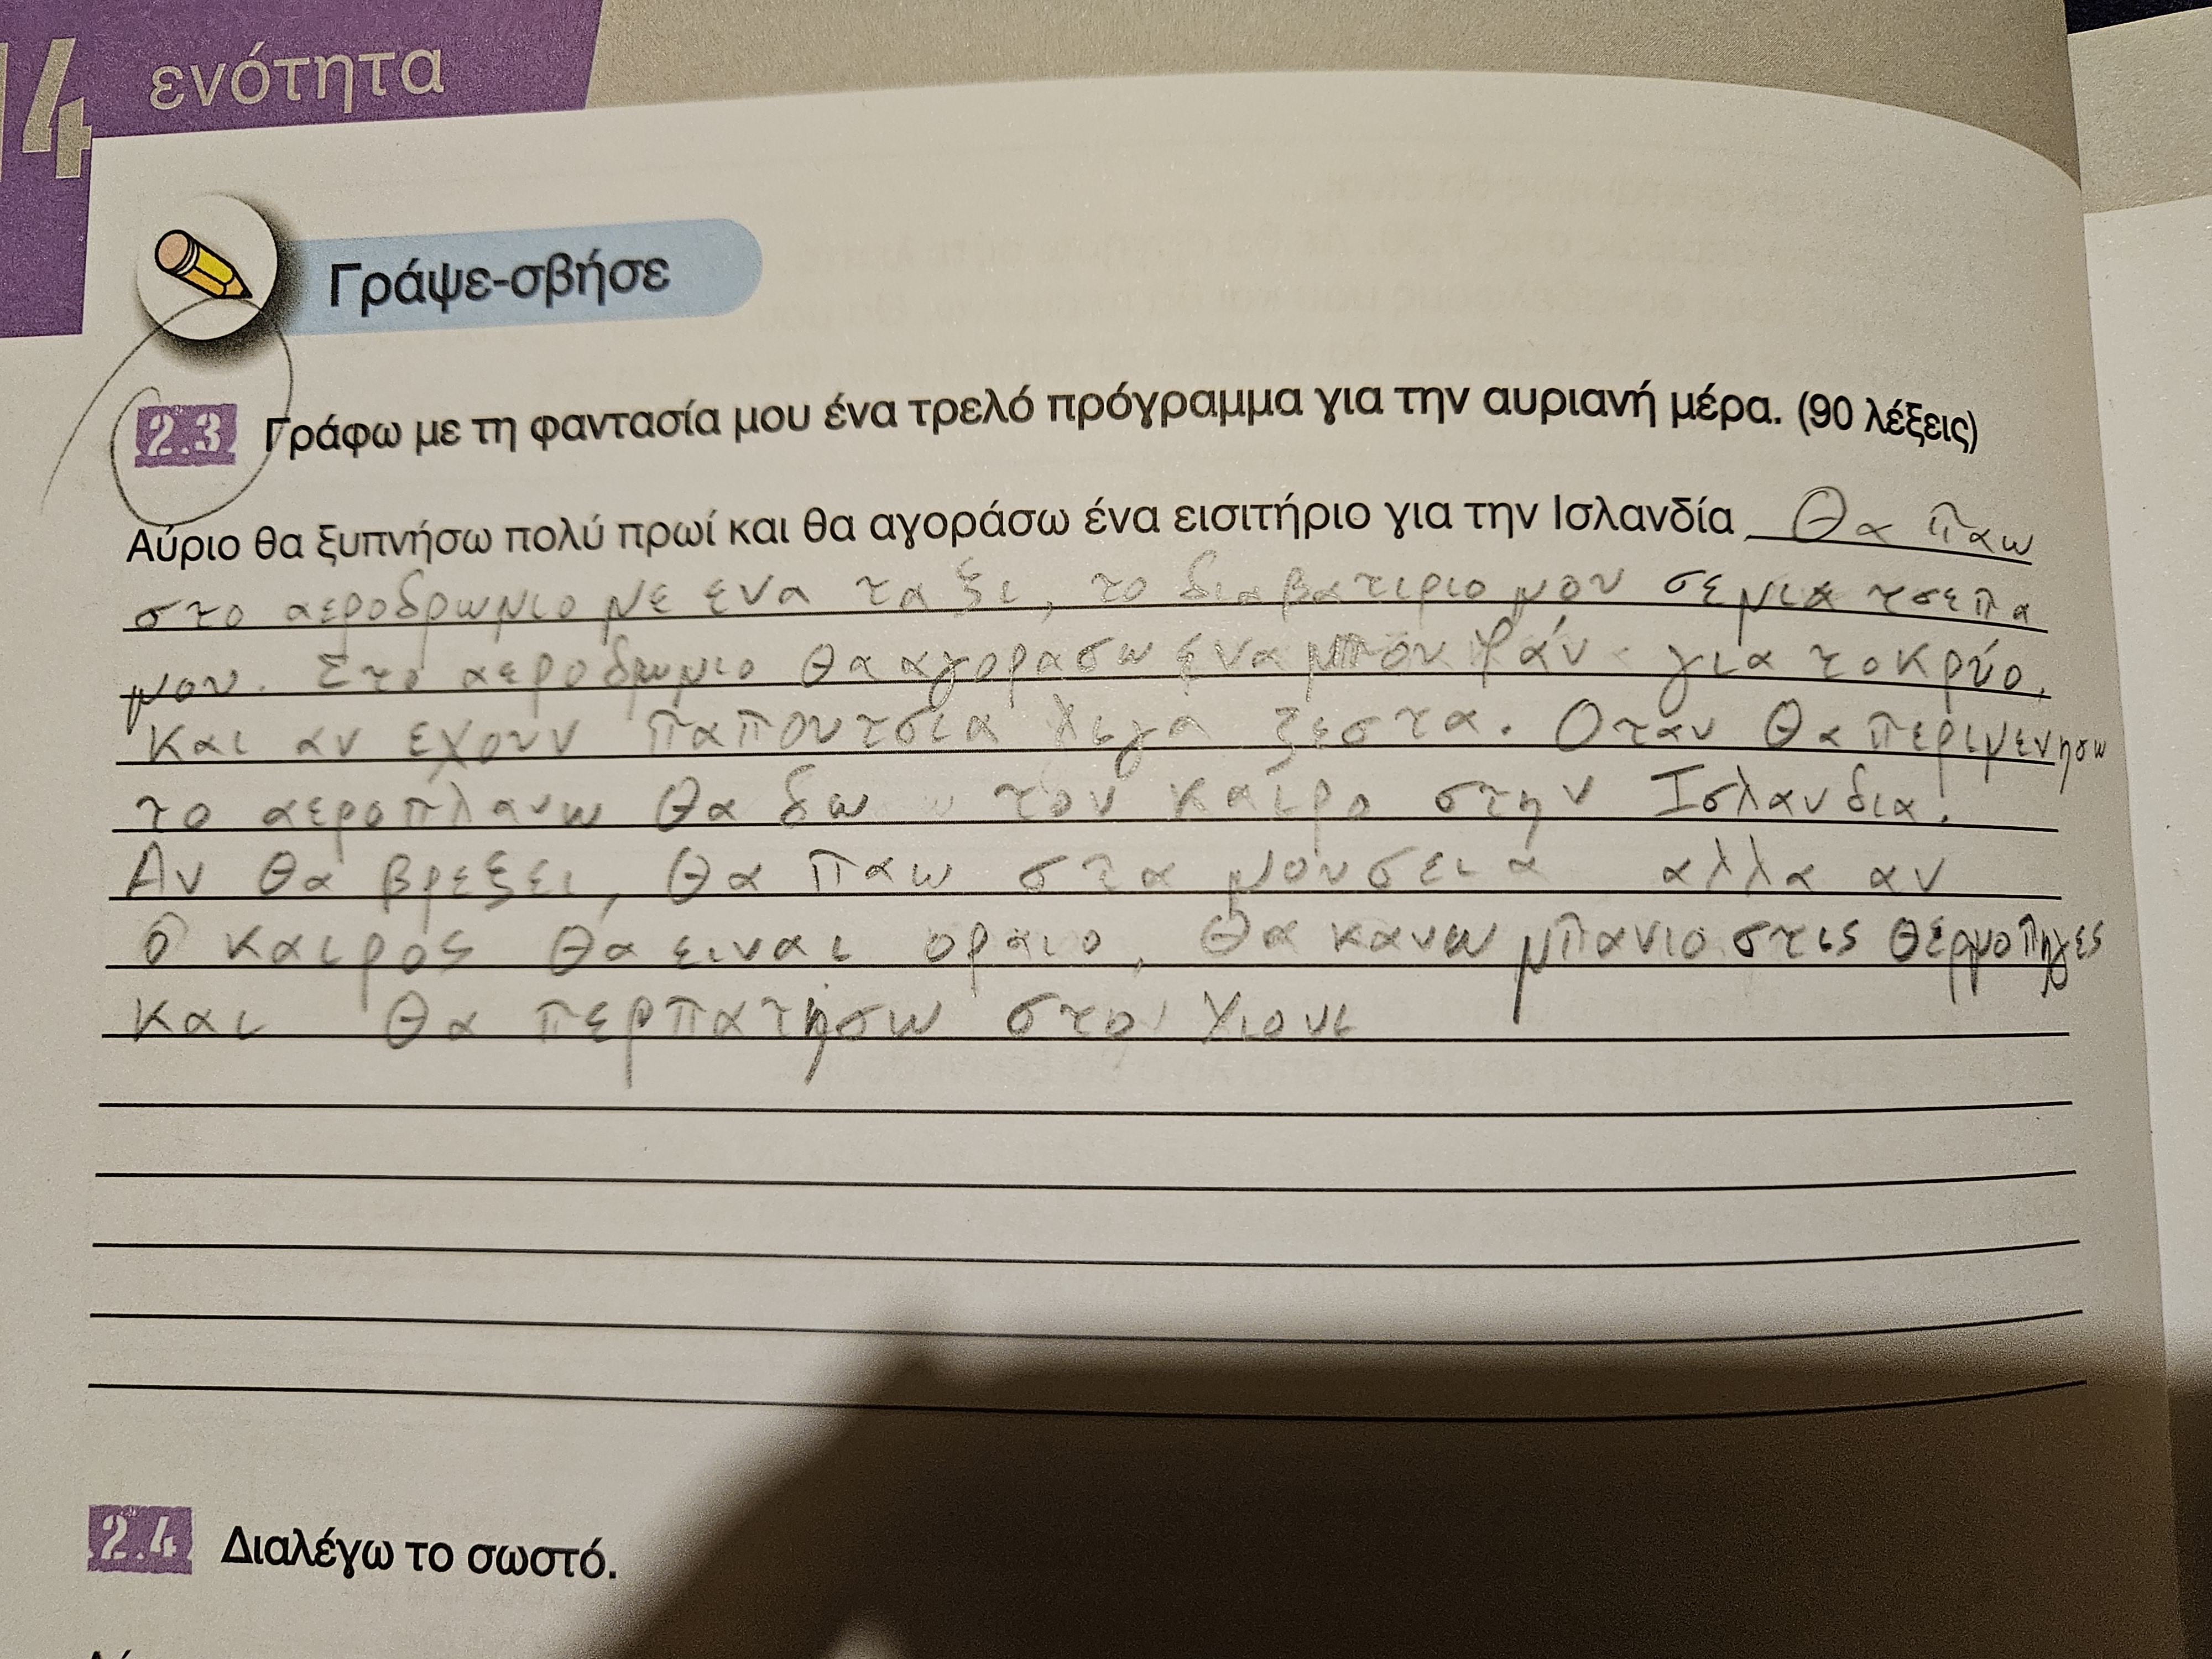 14 ενότητα
Γράψε-σβήσε
2.3 Γράφω με τη φαντασία μου ένα τρελό πρόγραμμα για την αυριανή μέρα. (90 λέξεις)
Αύριο θα ξυπνήσω πολύ πρωί και θα αγοράσω ένα εισιτήριο για την Ισλανδία Θα παω
στο αεροδρωμιο με ενα ταξι, το διαβατιριο μου σε μια τσεπα
μου. Στό αεροδρωμιο θα αγορασω ενα μπουφάν για το κρύο.
Και αν εχουν παπουτσια χιγα ζεστα. Οταν θα περιμενησω
το αεροπλανω θα δω τον καιρο στην Ισλανδια.
Αν θα βρεξει, θα παω στα μουσεια αλλα αν
ο καιρος θα ειναι οραιο, θα κανω μπανιο στις θερμοπηγες
και θα περπατησω στον χιονι
2.4 Διαλέγω το σωστό.